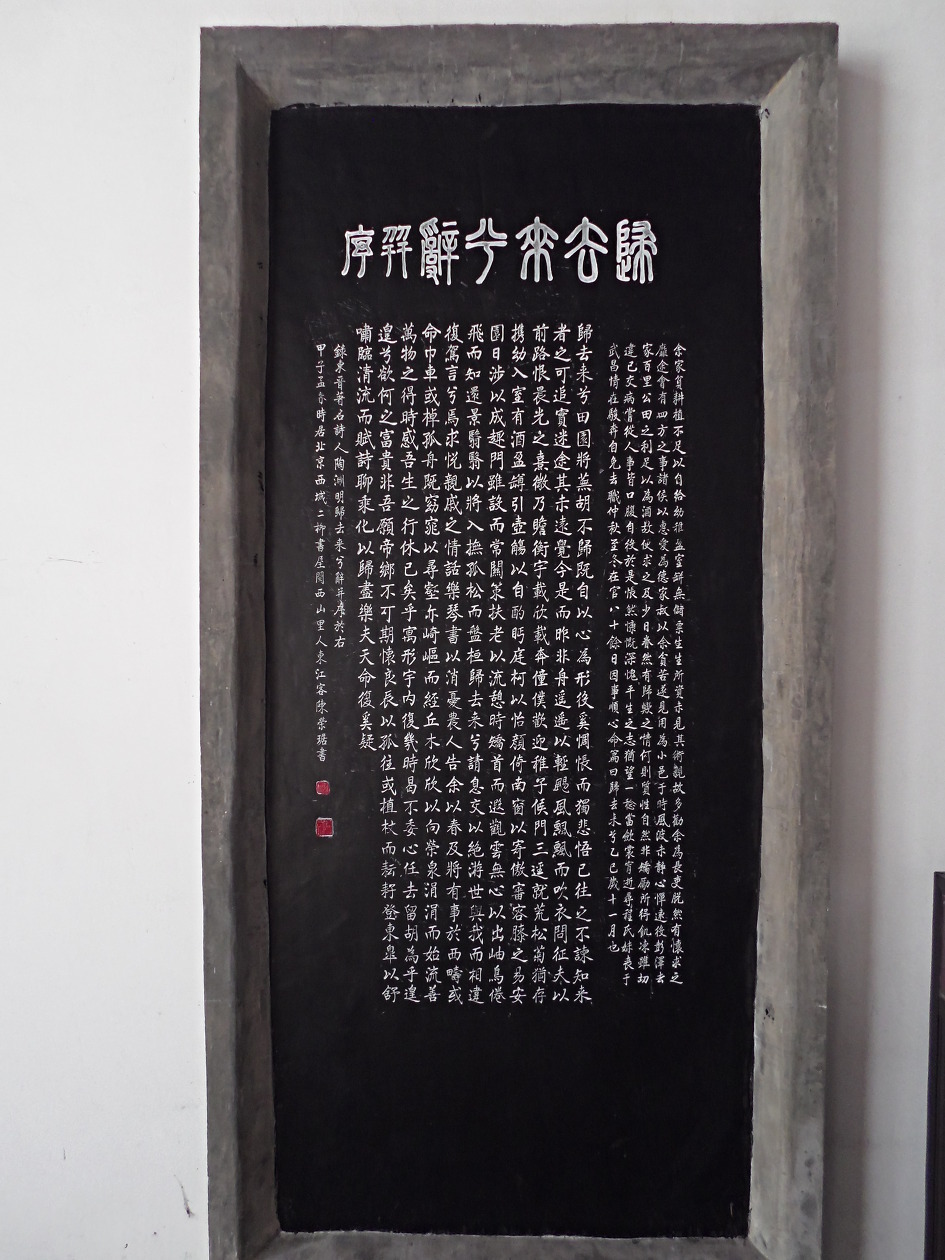 歸去來兮辭并序
余家貧耕植不足以自給幼稚盈室缾無儲粟生生所資未見其術親故多勸余為長吏脫然有懷求之
靡途會有四方之事諸侯以惠愛為德家叔以余貧苦遂見用為小邑于時風波未靜心憚遠役彭澤去
家百里公田之利足以為酒故便求之及少日眷然有歸歟之情何則質性自然非矯厲所得飢凍雖切
違己交病嘗從人事皆口腹自役於是悵然慷慨深愧平生之志猶望一稔當斂裳宵逝尋程氏妹喪于
武昌情在駿奔自免去職仲秋至冬在官八十餘日因事順心命篇曰歸去来兮乙巳歲十一月也
歸去来兮田園將蕪胡不歸既自以心為形役奚惆悵而獨悲悟已往之不諫知来
者之可追實迷途其未遠覺今是而昨非舟遥遥以輕颺風飄飄而吹衣問征夫以
前路恨晨光之熹微乃瞻衡宇載欣載奔僮僕歡迎稚子候門三逕就荒松菊猶存
携幼入室有酒盈罇引壺觴以自酌眄庭柯以怡顔倚南窗以寄傲審容膝之易安
園日涉以成趣門雖設而常關策扶老以流憩時矯首而遐觀雲無心以出岫鳥倦
飛而知還景翳翳以將入撫孤松而盤桓歸去来兮請息交以絶游世與我而相違
復駕言兮焉求悦親戚之情話樂琴書以消憂農人告余以春及將有事於西疇或
命巾車或棹孤舟既窈窕以尋壑亦崎嶇而經丘木欣欣以向榮泉涓涓而始流善
萬物之得時感吾生之行休已矣乎寓形宇内復幾時曷不委心任去留胡為乎遑
遑兮欲何之富貴非吾願帝鄉不可期懷良辰以孤往或植杖而耘耔登東皐以舒
嘯臨清流而賦詩聊乘化以歸盡樂夫天命復奚疑
錄東晉著名詩人陶淵明歸去来兮辭并序於右
甲子孟春時居北京西城二柳書屋閩西山里人東江客陳榮琚書